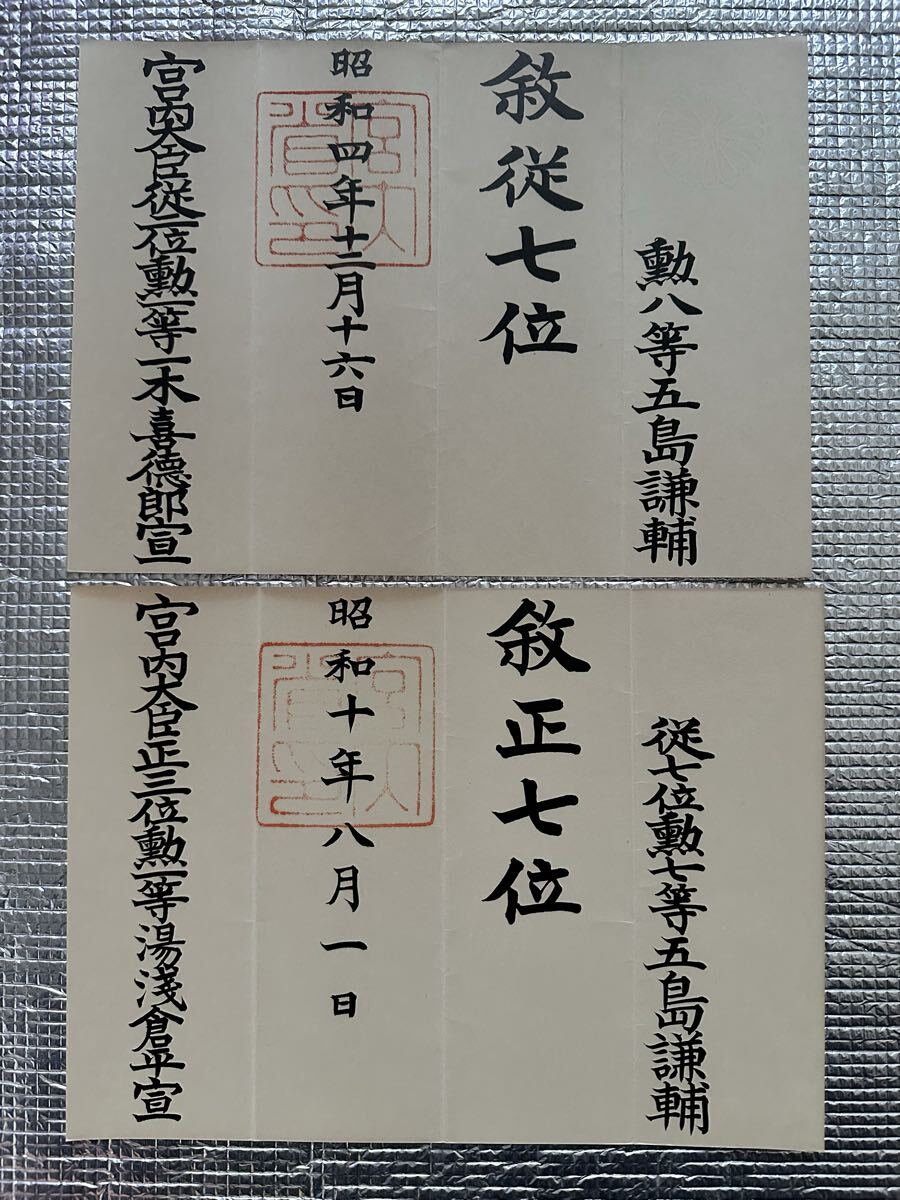 勲八等五島謙輔
敘従七位
昭和四年十二月十六日
宮内省印
宮内大臣従二位勲一等一木喜德郎宣
従七位勲七等五島謙輔
敘正七位
昭和十年八月一日
宮内省印
宮内大臣正三位勲一等湯淺倉平宣